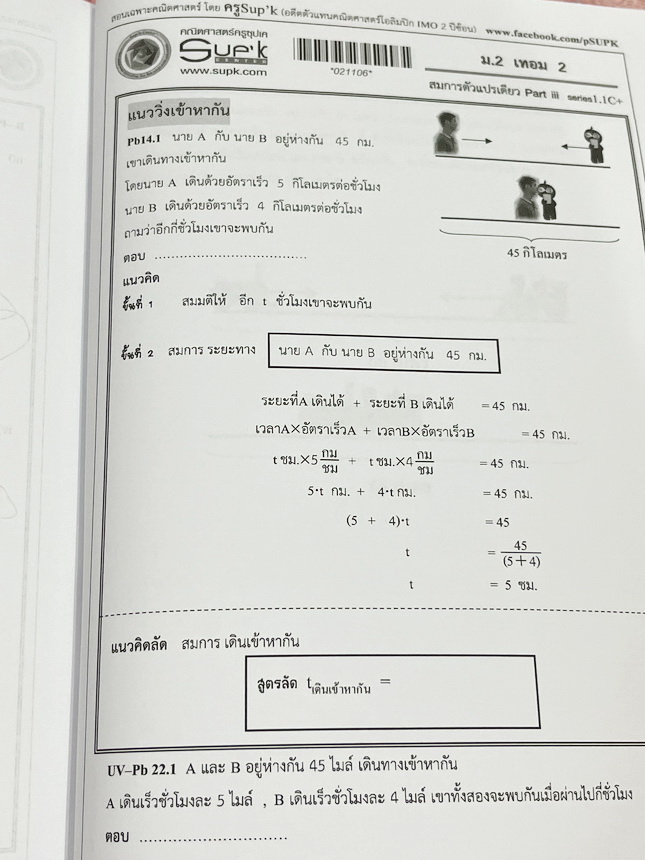 สอนเฉพาะคณิตศาสตร์ โดย ครูSup'k (อดีตตัวแทนคณิตศาสตร์โอลิมปิก IMO 2 ปีซ้อน) www.facebook.com/pSUPK
คณิตศาสตร์ครูซุปเค
Sup'k
CENTER
www.supk.com
*021106*
ม.2 เทอม 2
สมการตัวแปรเดียว Part iii series1.1C+
แนววิ่งเข้าหากัน
Pb14.1 นาย A กับ นาย B อยู่ห่างกัน 45 กม.
เขาเดินทางเข้าหากัน
โดยนาย A เดินด้วยอัตราเร็ว 5 กิโลเมตรต่อชั่วโมง
นาย B เดินด้วยอัตราเร็ว 4 กิโลเมตรต่อชั่วโมง
ถามว่าอีกกี่ชั่วโมงเขาจะพบกัน
45 กิโลเมตร
ตอบ ..................................
แนวคิด
ขั้นที่ 1 สมมติให้ อีก t ชั่วโมงเขาจะพบกัน
ขั้นที่ 2 สมการ ระยะทาง นาย A กับ นาย B อยู่ห่างกัน 45 กม.
ระยะที่A เดินได้ + ระยะที่ B เดินได้ = 45 กม.
เวลาA×อัตราเร็วA + เวลาB×อัตราเร็วB = 45 กม.
t ชม.×5 กม/ชม + t ชม.×4 กม/ชม = 45 กม.
5·t กม. + 4·t กม. = 45 กม.
(5 + 4)·t = 45
t = 45/(5+4)
t = 5 ชม.
แนวคิดลัด สมการ เดินเข้าหากัน
สูตรลัด tเดินเข้าหากัน =
UV–Pb 22.1 A และ B อยู่ห่างกัน 45 ไมล์ เดินทางเข้าหากัน
A เดินเร็วชั่วโมงละ 5 ไมล์ , B เดินเร็วชั่วโมงละ 4 ไมล์ เขาทั้งสองจะพบกันเมื่อผ่านไปกี่ชั่วโมง
ตอบ .............................